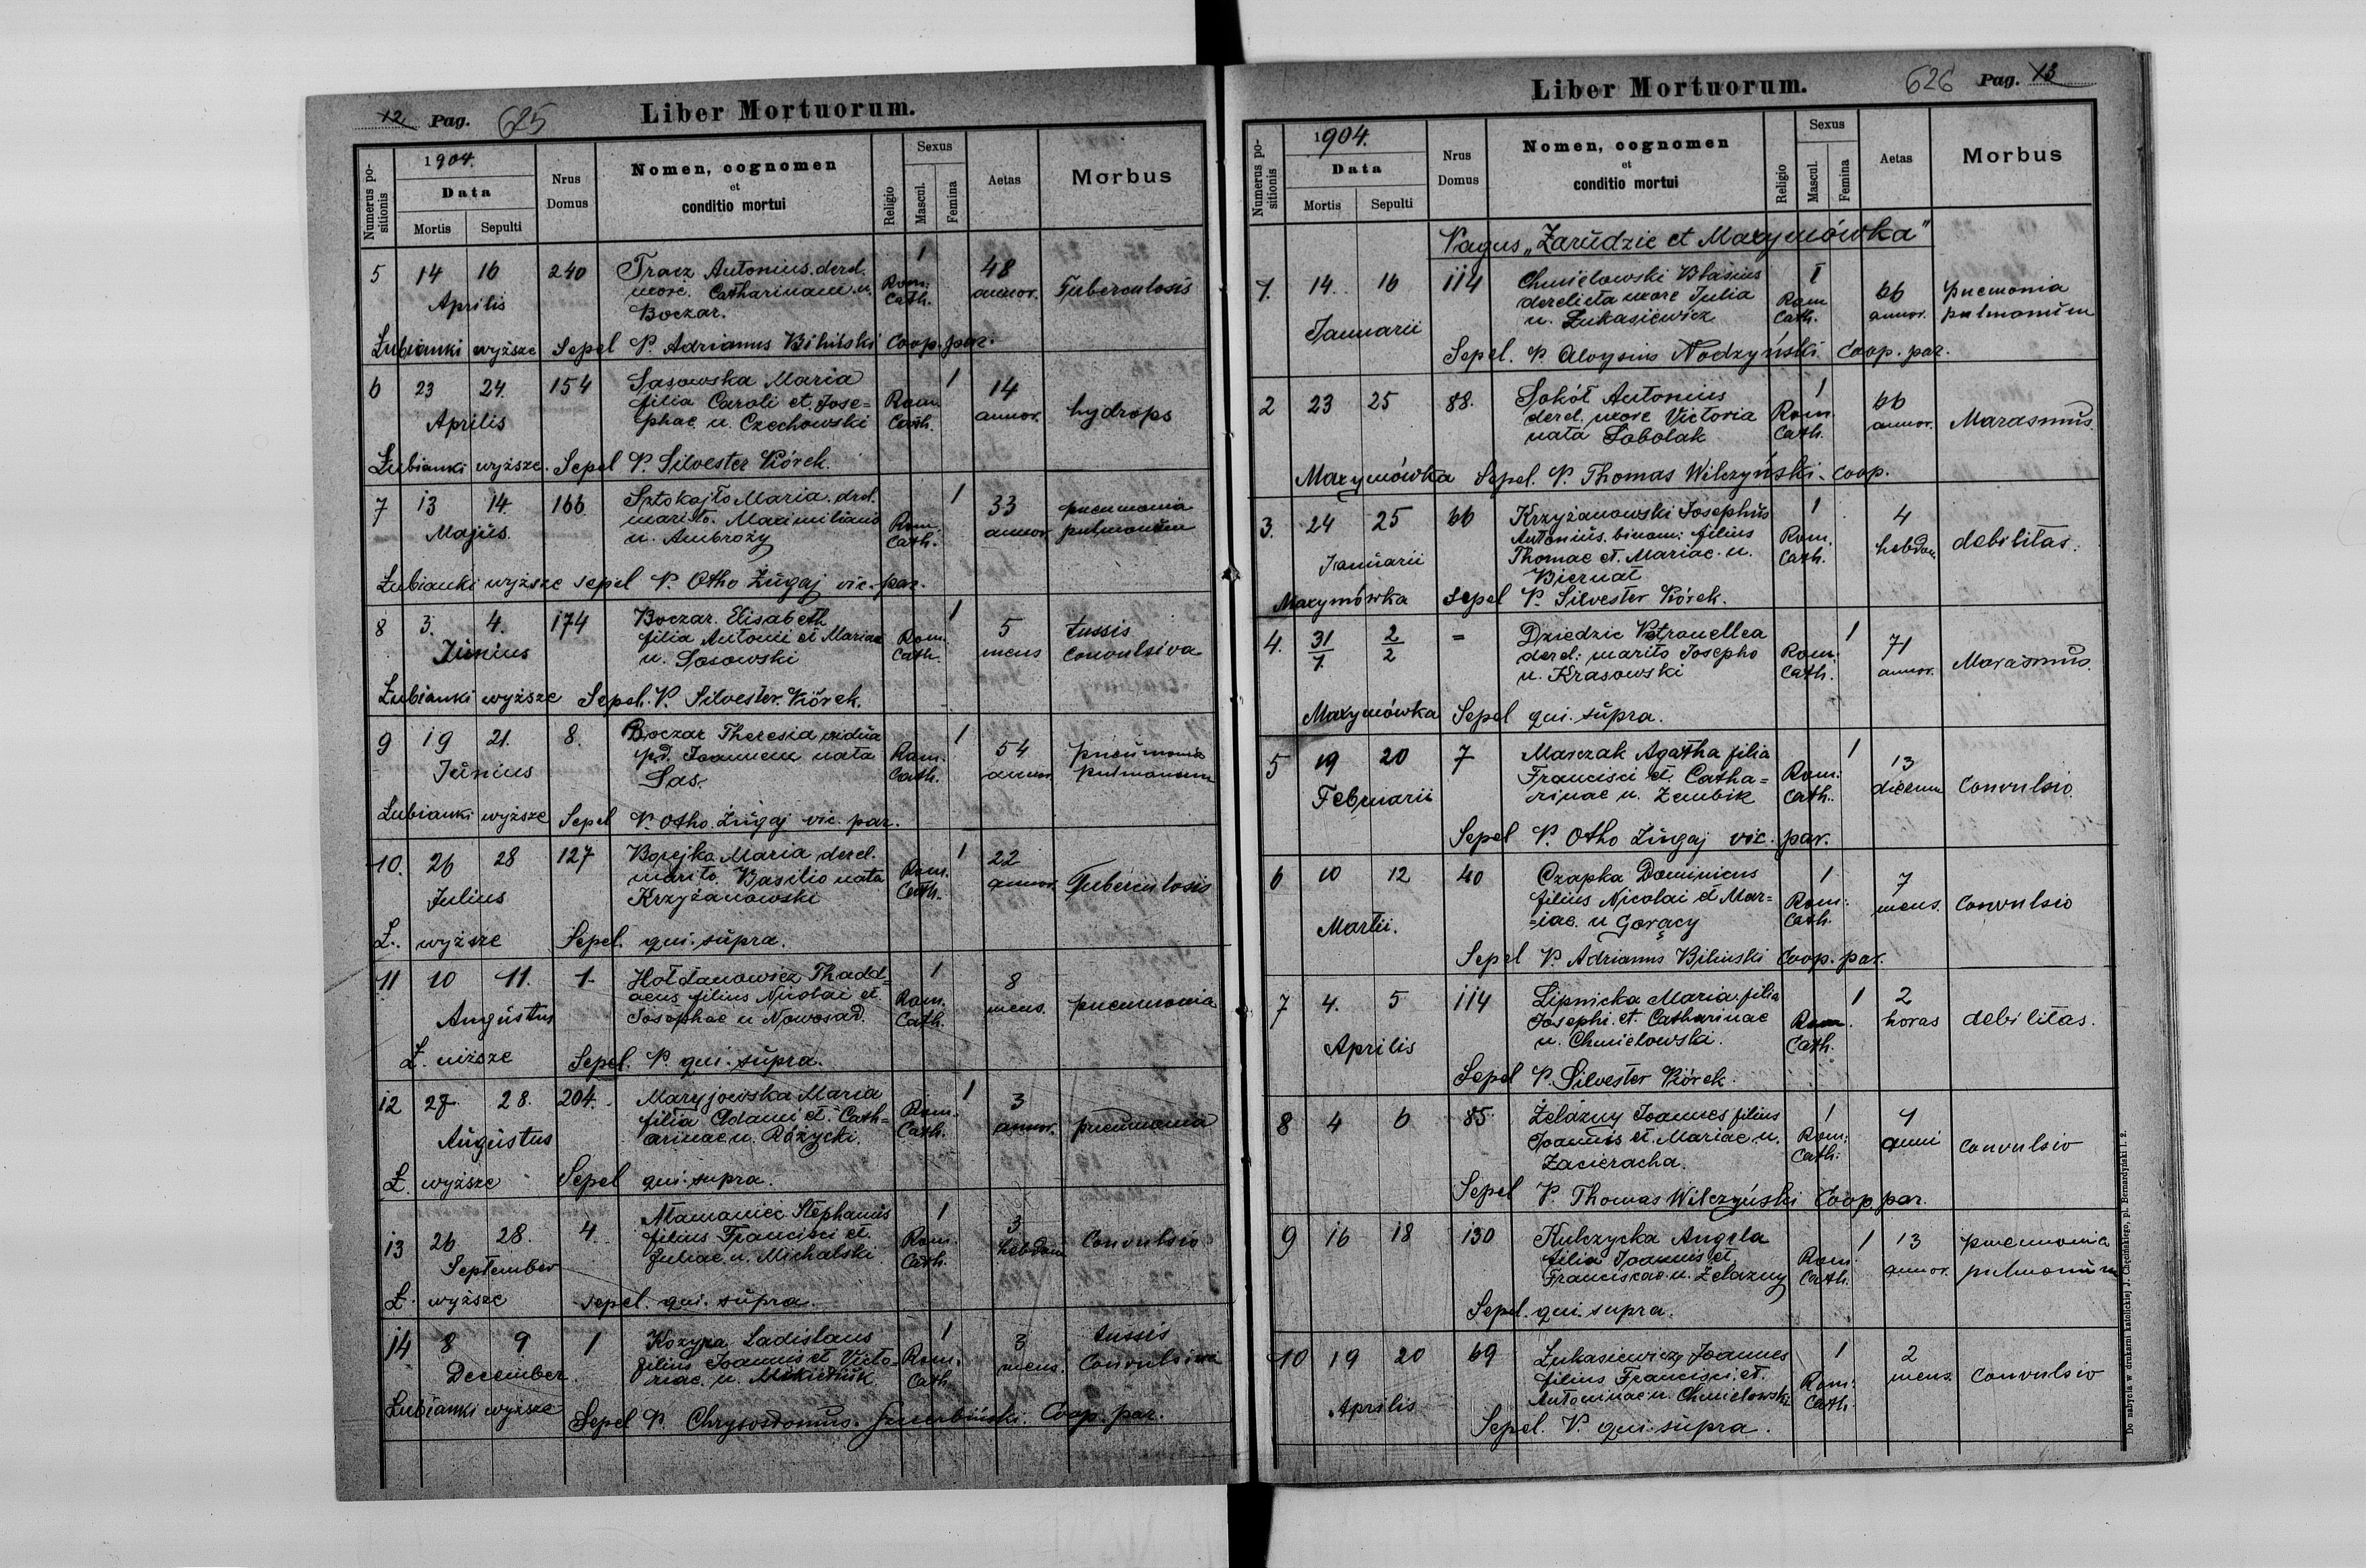 12 Pag. 625
Liber Mortuorum.
Numerus positionis
1904.
Data
Mortis
Sepulti
Nrus Domus
Nomen, cognomen
et
conditio mortui
Religio
Sexus
Mascul.
Femina
Aetas
Morbus
5 14 16 240 Tracz Antonius. derel. 1 48
Aprilis uxore. Catharinam n. Rom. Cath. annor. Tuberculosis
Boczar.
Łubianki wyższe Sepel P. Adrianus Biliński Coop. par.
6 23 24. 154 Sasowska Maria 1 14
Aprilis filia Caroli et Jose= Rom. annor. hydrops
phae n. Czechowski Cath.
Łubianki wyższe. Sepel P. Silvester Kiórek.
7 13 14. 166 Sztokajło Maria. drel. 1 33 pneumonia
Majus. marito. Maximiliano Rom. annor. pulmonum
n. Ambroży Cath.
Łubianki wyższe sepel P. Otho Żugaj vic. par.
8 3. 4. 174 Boczar. Elisabeth 1 5 tussis
Junius filia Antonii et Mariae Rom. mens convulsiva
n. Sosowski Cath.
Łubianki wyższe Sepel. P. Silvester. Kiórek.
9 19 21. 8. Boczar Theresia vidua 1 54 pneumonia
Junius pd. Joannem nata Rom. annor. pulmonum
Sas. Cath.
Łubianki wyższe Sepel P. Otho. Żugaj vic. par.
10. 26 28 127 Borejko Maria derel. 1 22
Julius marito. Basilio nata Rom. annor. Tuberculosis
Krzyżanowski Cath.
Ł. wyższe Sepel. qui. supra.
11 10 11. 1- Hołdanowicz Thadd= 1 8
Augustus aeus filius Nicolai et Rom. mens. pneumonia
Josephae n Nowosad. Cath.
Ł. niższe Sepel. P. qui. supra.
12 27 28. 204. Maryjowska Maria 1 3
Augustus filia Adami et Cath= Rom. annor. pneumonia
arinae n. Różycki. Cath.
Ł. wyższe Sepel qui. supra.
13 26 28. 4. Atamaniec Stephanus 1 3
September filius Francisci et Rom. hebdom Convulsio
Juliae. n. Michalski Cath.
Ł. wyższe sepel. qui. supra.
14 8 9. 1 Kozyra Ladislaus 1 3 tussis
December. filius Joannis et Victo= Rom. mens. Convulsiva
riae. n. Cath.
Łubianki wyższe Sepel P. Chrysostomus. Coop. par.
Liber Mortuorum.
626 Pag. 13
Numerus positionis
1904.
Data
Mortis
Sepulti
Nrus Domus
Nomen, cognomen
et
conditio mortui
Religio
Sexus
Mascul.
Femina
Aetas
Morbus
Vagus „Zarudzie et Maxymówka"
1. 14. 16 114 Chmielowski Blasius 1 66 pneumonia
Januarii derelicta uxore Julia Rom annor. pulmonum
n. Łukasiewicz Cath.
Sepel. P. Aloysius Nodzyński Coop. par.
2 23 25 88. Sokół Antonius 1 66
derel. uxore Victoria Rom. annor. Marasmus.
nata Sobolak Cath.
Maxymówka Sepel. P. Thomas Wilczyński. Coop.
3. 24 25 66 Krzyżanowski Josephus 1 4
Antonius. binom: filius Rom. hebdom debilitas.
Januarii Thomae et. Mariae. n. Cath.
Biernat
Maxymówka Sepel P. Silvester Kiórek.
4. 31/1 2/2 = Dziedzic Petronella 1 71
derel: marito Josepho Rom. annor. Marasmus.
n. Krasowski Cath.
Maxymówka Sepel qui. supra.
5 19 20 7 Marczak Agatha filia 1 13
Februarii Francisci et. Catha= Rom. dierum Convulsio
rinae n. Zembik Cath.
Sepel P. Otho Żugaj vic. par.
6 10 12 40 Czapka Dominicus 1 7
filius Nicolai et Mar= Rom. mens. Convulsio
Martii. =iae. n Gorący Cath.
Sepel P. Adrianus Biliński Coop. par.
7 4. 5 114 Lipnicka Maria. filia 1 2
Josephi. et. Catharinae Rom. horas debilitas.
Aprilis n. Chmielowski. Cath.
Sepel P. Silvester Kiórek.
8 4 6 85 Żelazny Joannes filius 1 4
Joannis et. Mariae n. Rom. anni Convulsio
Zacieracha. Cath.
Sepel P. Thomas Wilczyński Coop. par.
9 16 18 130 Kulczycka Angela 1 13 pneumonia
filia Joannis et Rom. annor. pulmonum
Franciscae n. Żelazny Cath.
Sepel. qui. supra.
10 19 20 69 Łukasiewicz Joannes 1 2
filius Francisci. et. Rom. mens. Convulsio
Aprilis Antoninae n. Chmielowski Cath.
Sepel. P. qui. supra.
Do nabycia w drukarni katolickiej J. Chęcińskiego, pl. Bernardyński l. 2.